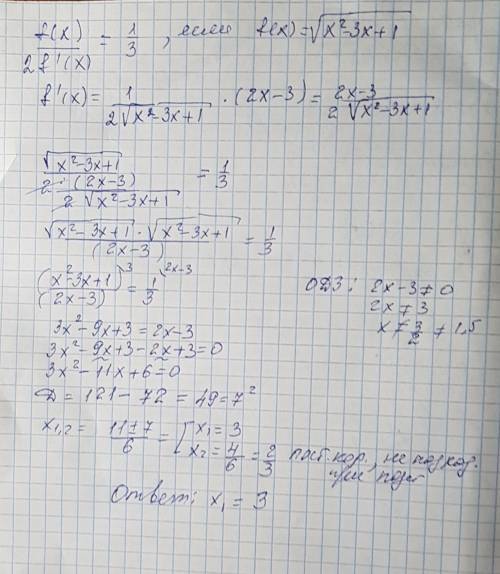 f(x)/2f'(x) = 1/3, если f(x)=√(x²-3x+1)
f'(x)= 1/(2√(x²-3x+1)) · (2x-3) = (2x-3)/(2√(x²-3x+1))
√(x²-3x+1) / (2·(2x-3)/(2√(x²-3x+1))) = 1/3
(√(x²-3x+1) · √(x²-3x+1))/(2x-3) = 1/3
(x²-3x+1)\3/(2x-3) = 1\2x-3/3
ОДЗ: 2x-3≠0
2x≠3
x≠3/2≠1,5
3x²-9x+3=2x-3
3x²-9x+3-2x+3=0
3x²-11x+6=0
D=121-72=49=7²
x₁,₂= (11±7)/6 = [x₁=3
x₂=4/6=2/3 пост. кор., не подход.
при
Ответ: x₁=3